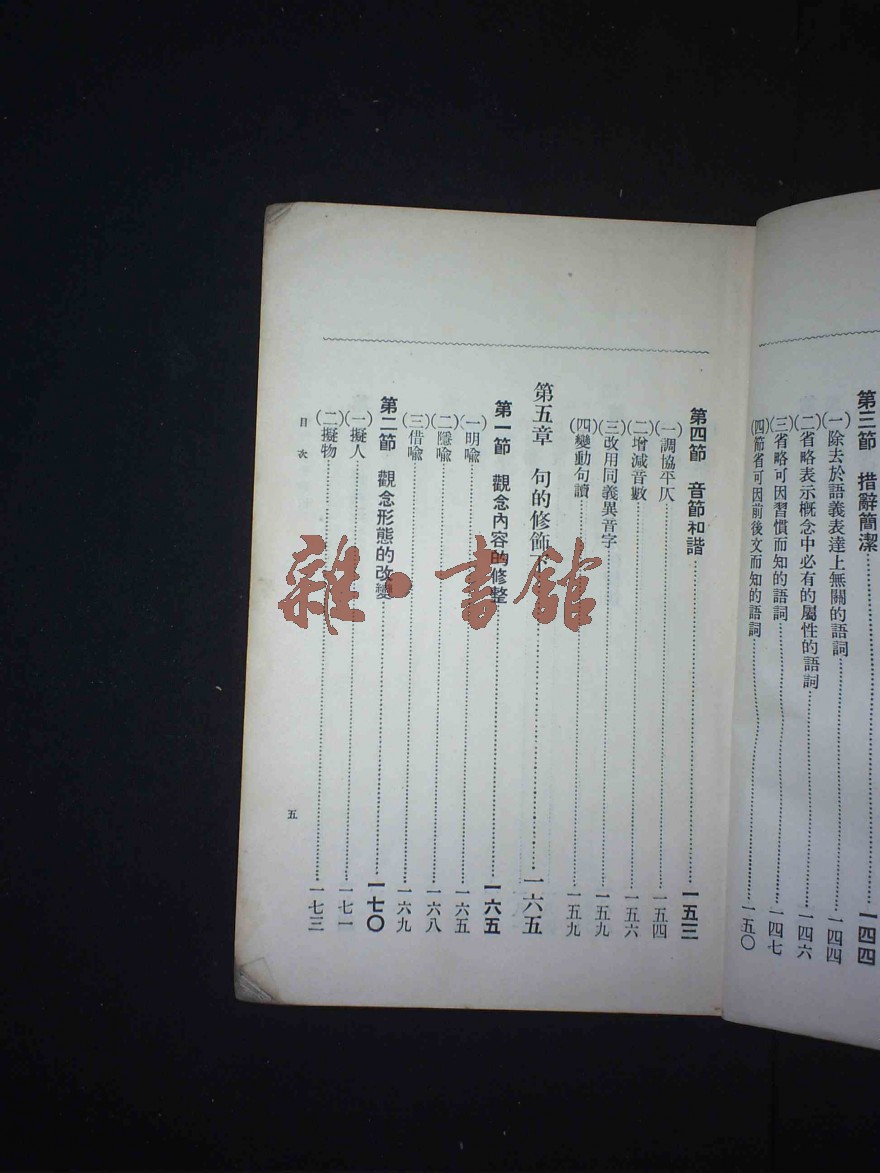 第三節　措辭簡潔……一四四
(一)除去於語義表達上無關的語詞……一四四
(二)省略表示概念中必有的屬性的語詞……一四六
(三)省略可因習慣而知的語詞……一四七
(四)節省可因前後文而知的語詞……一五〇
第四節　音節和諧……一五三
(一)調協平仄……一五四
(二)增減音數……一五六
(三)改用同義異音字……一五九
(四)變動句讀……一五九
第五章　句的修飾下……一六五
第一節　觀念內容的修整……一六五
(一)明喩……一六五
(二)隱喩……一六八
(三)借喩……一六九
第二節　觀念形態的改變……一七〇
(一)擬人……一七一
(二)擬物……一七三
目次
五
雜·書館